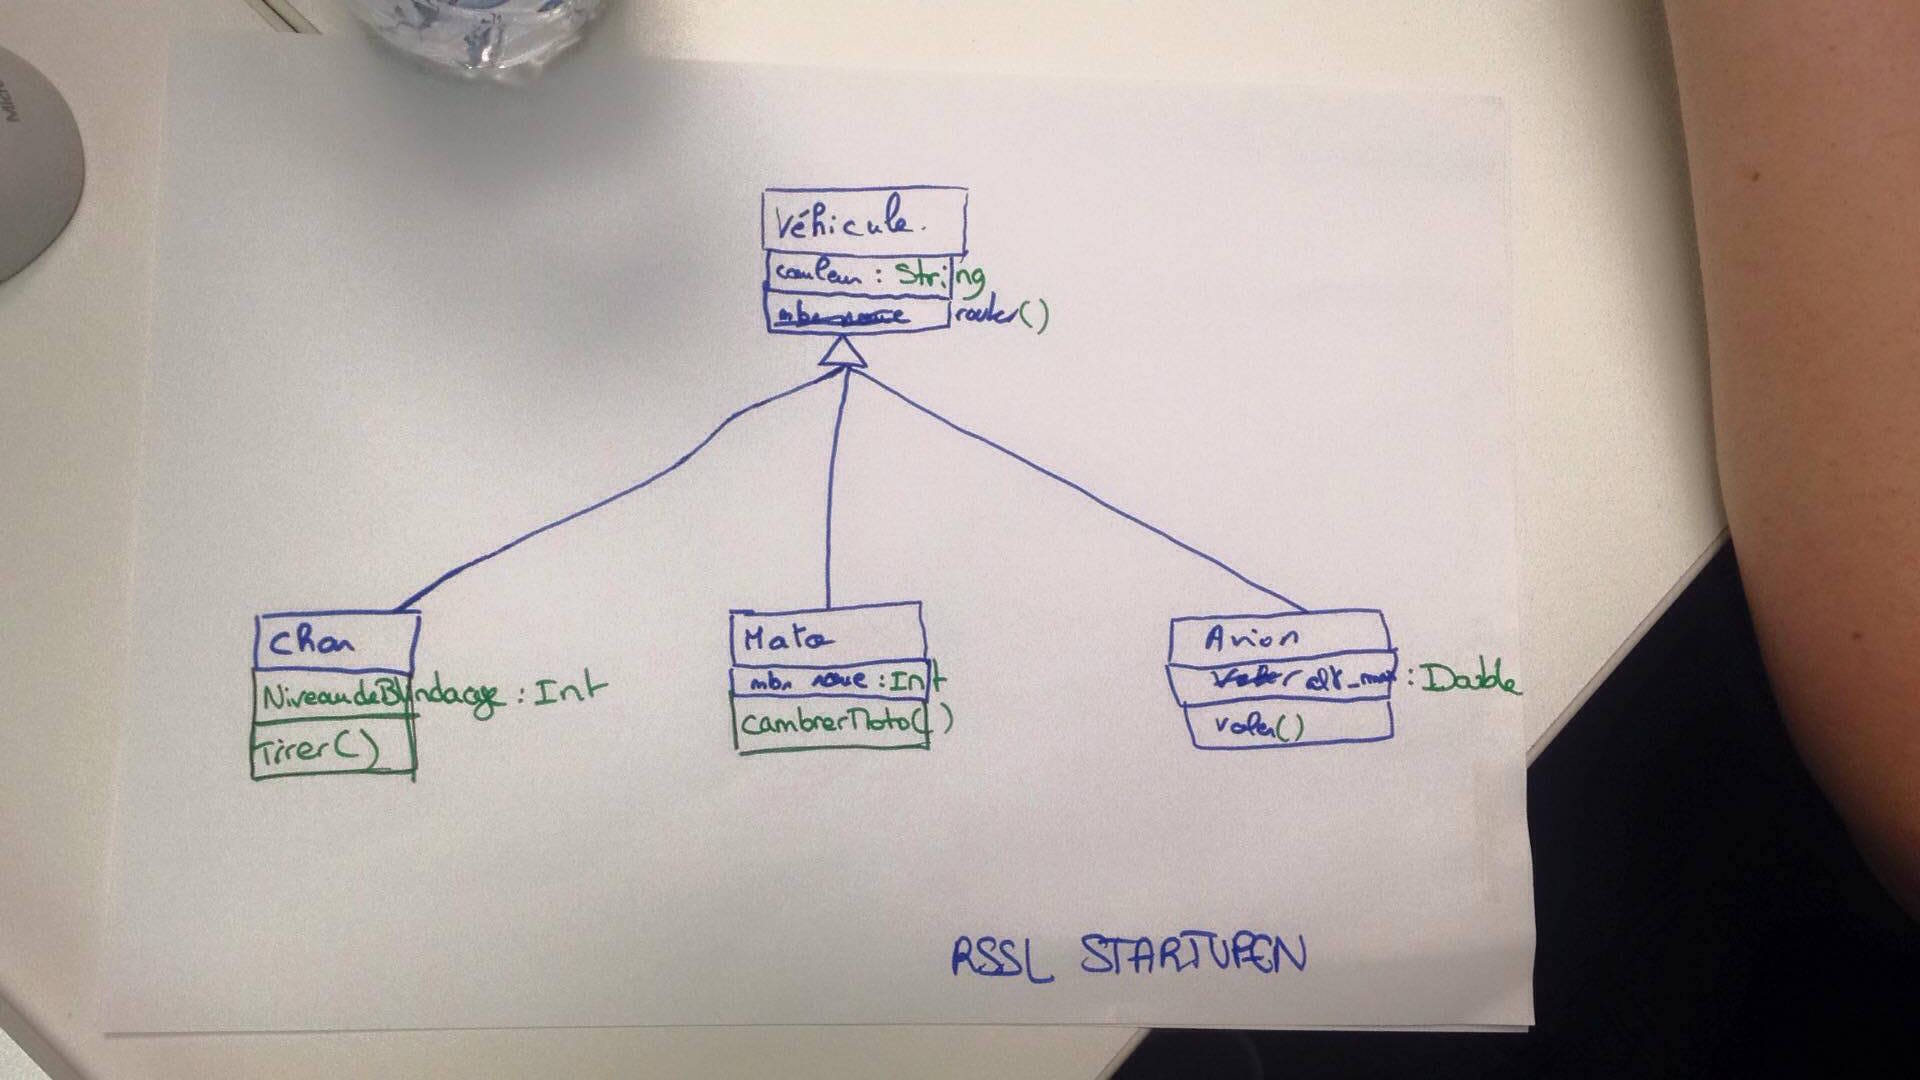 Véhicule.
couleur : String
rouler()
Char
NiveaudeBlindage : Int
Tirer()
Moto
nbr roue : Int
cambrerMoto()
Avion
alt_max : Double
voler()
RSSL STARTUPEN